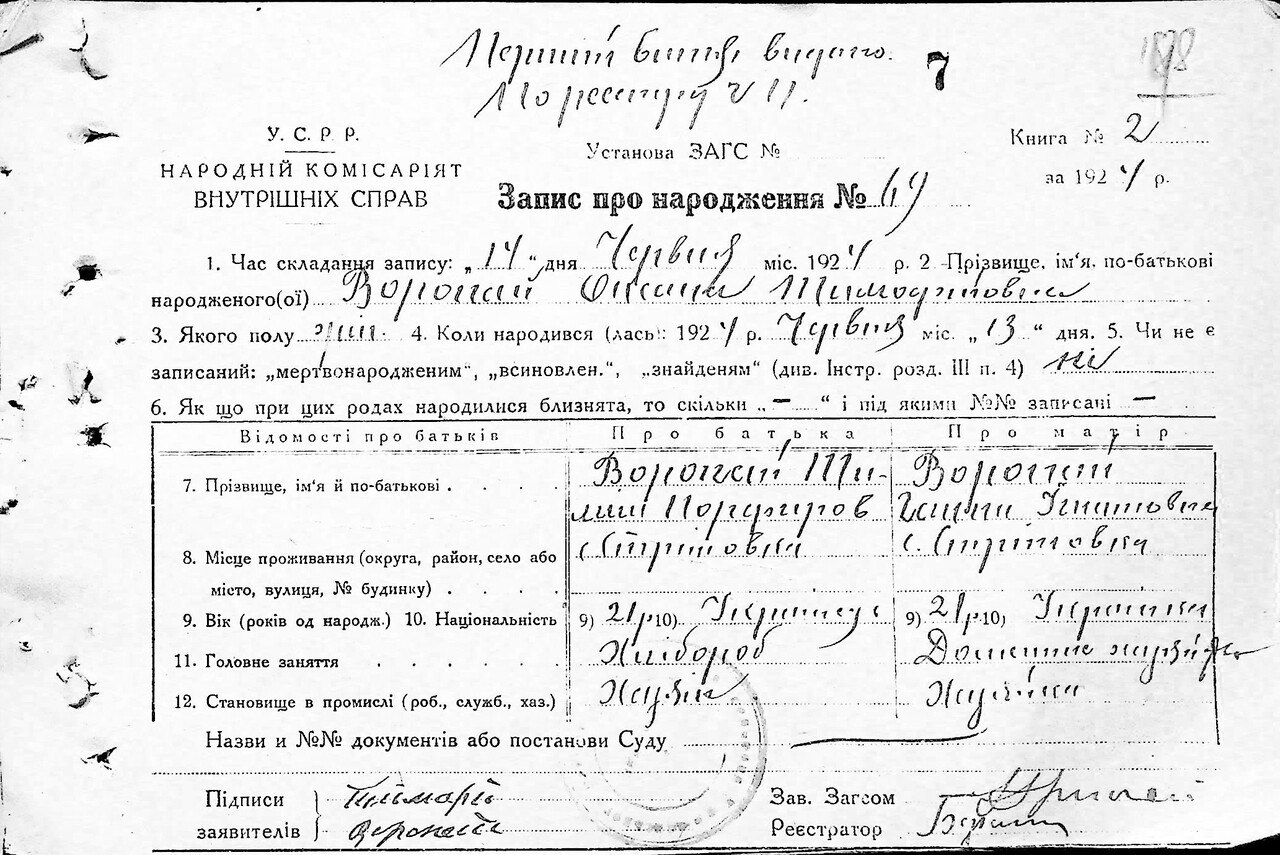 Перший витяг видано.
По реєстру ч 11.
7
У. С. Р. Р.
НАРОДНІЙ КОМІСАРІЯТ
ВНУТРІШНІХ СПРАВ
Установа ЗАГС №
Книга № 2
за 1924 р.
Запис про народження № 49
1. Час складання запису: „14“ дня Червня міс. 1924 р. 2 Прізвище, ім'я, по-батькові
народженого(ої) Воропай Оксана Тимофіївна
3. Якого полу жін. 4. Коли народився (лась): 1924 р. Червня міс. „13“ дня. 5. Чи не є
записаний: „мертвонародженим“, „всиновлен.“, „знайденям“ (див. Інстр. розд. III п. 4) ні
6. Як що при цих родах народилися близнята, то скільки „—“ і під якими №№ записані —
Відомості про батьків Про батька Про матір
7. Прізвище, ім'я й по-батькові . . . . Воропай Ти- Воропай
Порфиров Ганна Ігнатовна
8. Місце проживання (округа, район, село або с. Стрітовка с. Стрітовка
місто, вулиця, № будинку) . . . .
9. Вік (років од народж.) 10. Національність 9) 21 р 10) Українець 9) 21 р. 10) Українка
11. Головне заняття . . . . . . Хлібороб Домашне
12. Становище в промислі (роб., служб., хаз.) Хазяїн Хазяйка
Назви и №№ документів або постанови Суду
Підписи
заявителів Воропай
Зав. Загсом
Реєстратор